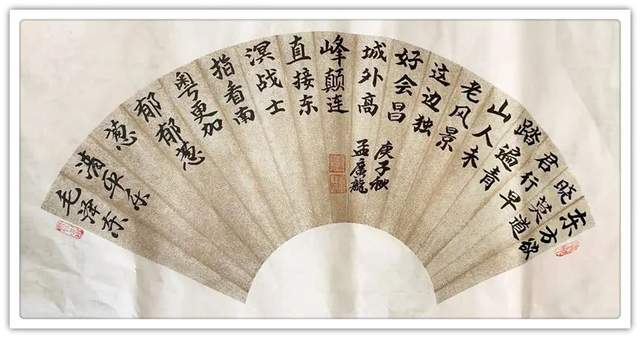 东方欲
晓莫道
君行早
踏遍青
山人未
老风景
这边独
好会昌
城外高
峰颠连
直接东
溟战士
指看南
粤更加
郁郁葱
葱
清平乐
毛泽东
庚子秋
孟廣龍